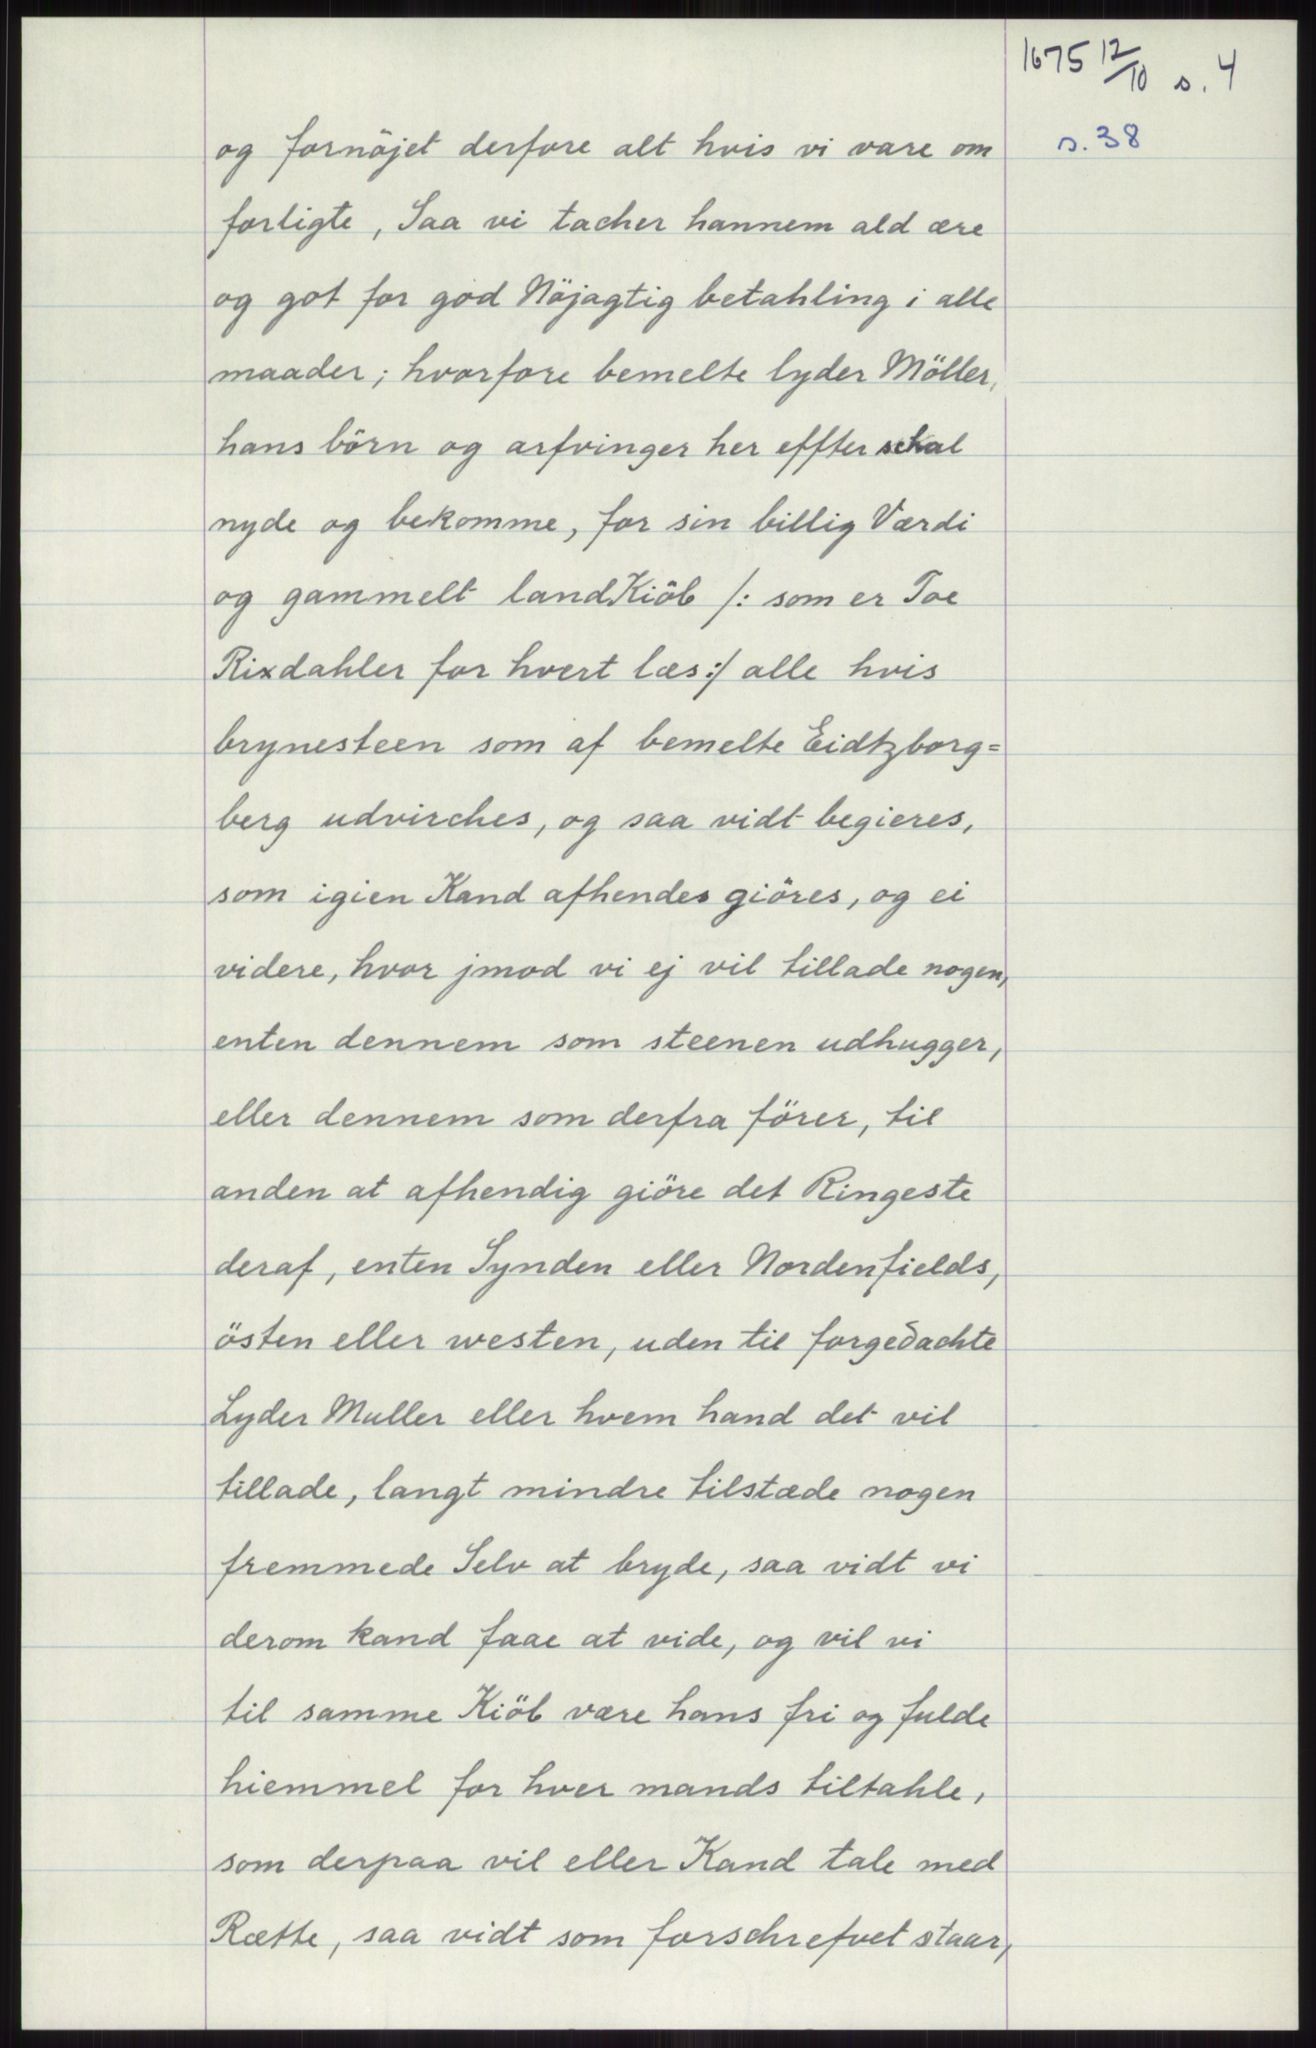 1675 12/10 s. 4
s. 38
og fornöjet derfore alt hvis vi vare om
forligte, Saa vi tacher hannem ald ære
og got for god Nöjagtig betahling i alle
maader; hvorfore bemelte lyder Möller,
hans börn og arfvinger her effter schal
nyde og bekomme, for sin billig Værdi
og gammelt landKiöb /: som er Toe
Rixdahler for hvert læs :/ alle hvis
brynesteen som af bemelte Eidtzborg=
berg udvirches, og saa vidt begieres,
som igien Kand afhendes giöres, og ei
videre, hvor jmod vi ej vil tillade nogen,
enten dennem som steenen udhugger,
eller dennem som derfra förer, til
anden at afhendig giöre det Ringeste
deraf, enten Synden eller Nordenfields,
östen eller westen, uden til forgedachte
Lyder Muller eller hvem hand det vil
tillade, langt mindre tilstæde nogen
fremmede Selv at bryde, saa vidt vi
derom kand faae at vide, og vil vi
til samme Kiöb være hans fri og fulde
hiemmel for hver mands tiltahle,
som derpaa vil eller Kand tale med
Rætte, saa vidt som forschrefvet staar,